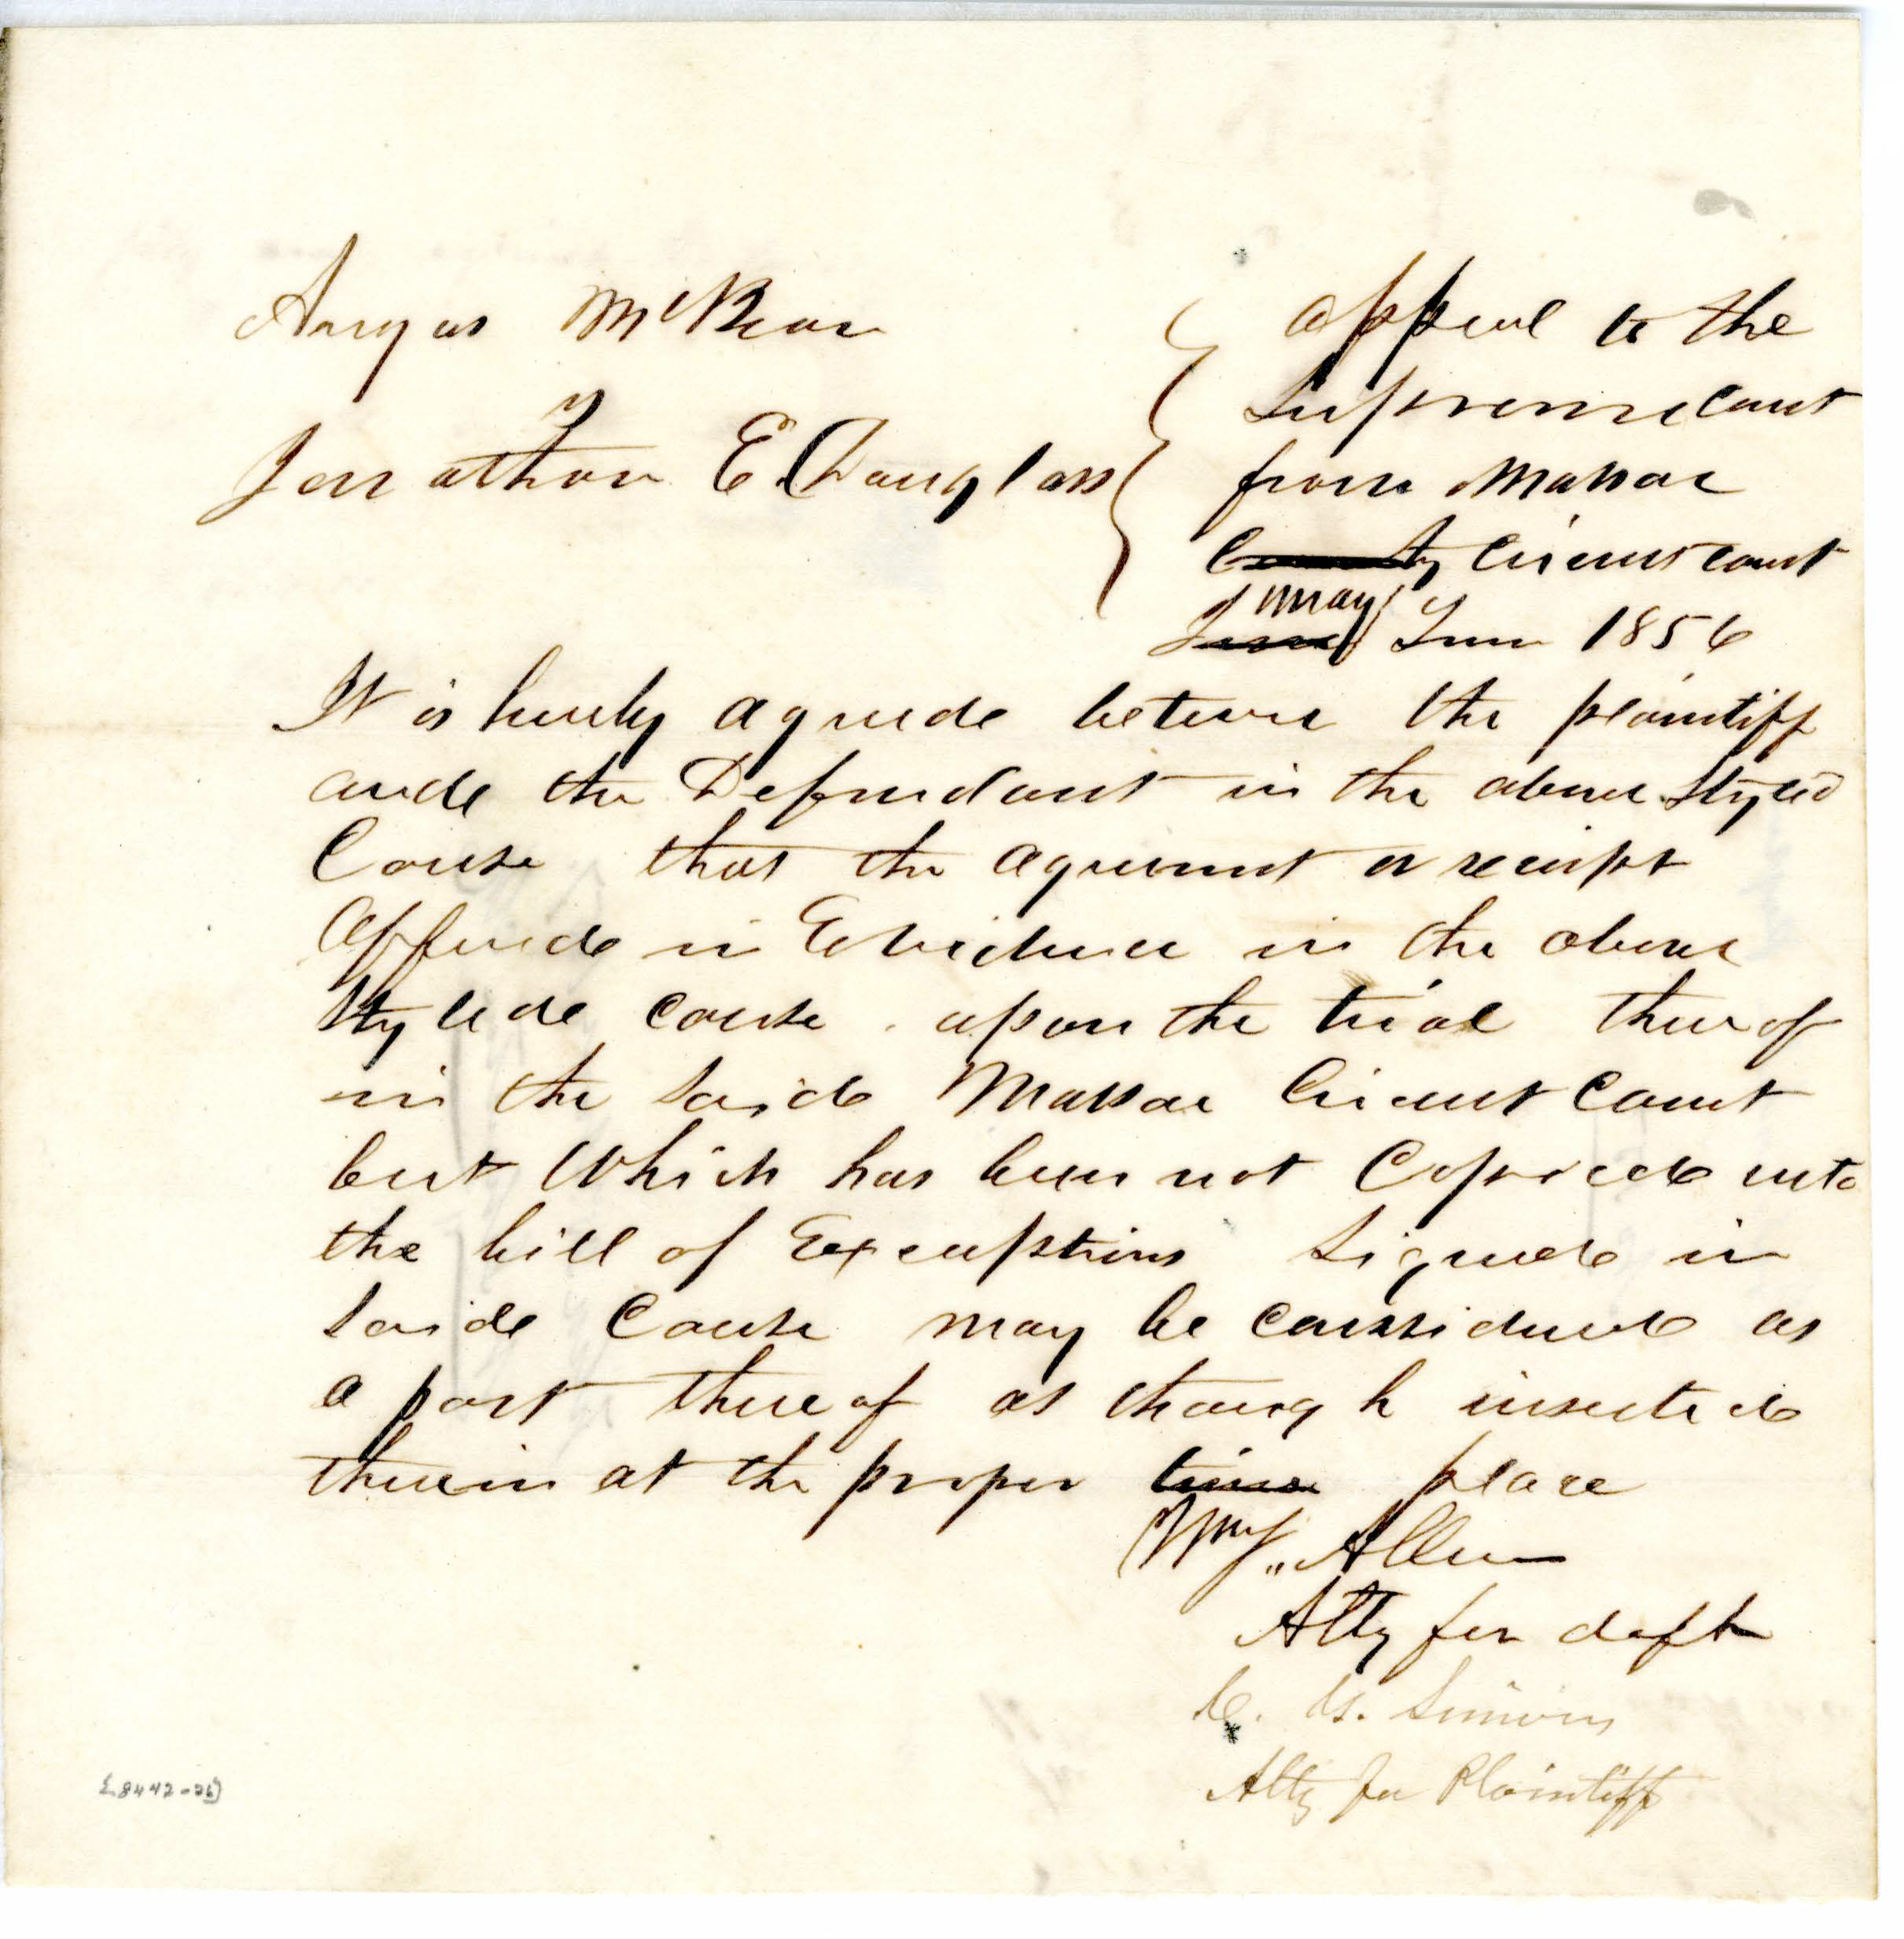 Angus McBean
vs
Jonathan E. Douglass
appeal to the
Supreme Court
from Massac
County Circuit Court
June May Term 1856
It is hereby agreede between the plaintiff
ande the Defendant in the above Styled
Cause that the agreement or receipt
Offerede in Evidence in the above
Stylede cause upon the trial thereof
in the saide Massac Circuit Court
but Which has been not Copiede into
the bill of Exceuptions signede in
saide Cause may be considerede as
a part thereof as though insertede
therein at the proper time place
Wm J. Allen
Atty for deft
C. G. Simons
Atty for Plaintiff
[8442-26]